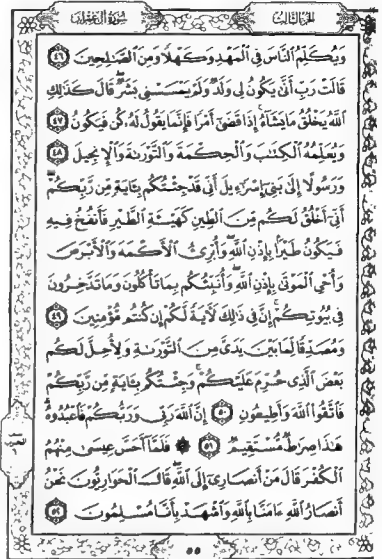 سورة آل عمران
الجزء الثالث
وَيُكَلِّمُ ٱلنَّاسَ فِي ٱلْمَهْدِ وَكَهْلًا وَمِنَ ٱلصَّٰلِحِينَ ﴿٤٦﴾
قَالَتْ رَبِّ أَنَّىٰ يَكُونُ لِي وَلَدٌ وَلَمْ يَمْسَسْنِي بَشَرٌ ۖ قَالَ كَذَٰلِكِ
ٱللَّهُ يَخْلُقُ مَا يَشَآءُ ۚ إِذَا قَضَىٰٓ أَمْرًا فَإِنَّمَا يَقُولُ لَهُۥ كُن فَيَكُونُ ﴿٤٧﴾
وَيُعَلِّمُهُ ٱلْكِتَٰبَ وَٱلْحِكْمَةَ وَٱلتَّوْرَىٰةَ وَٱلْإِنجِيلَ ﴿٤٨﴾
وَرَسُولًا إِلَىٰ بَنِيٓ إِسْرَٰٓءِيلَ أَنِّي قَدْ جِئْتُكُم بِـَٔايَةٍ مِّن رَّبِّكُمْ ۖ
أَنِّيٓ أَخْلُقُ لَكُم مِّنَ ٱلطِّينِ كَهَيْـَٔةِ ٱلطَّيْرِ فَأَنفُخُ فِيهِ
فَيَكُونُ طَيْرًۢا بِإِذْنِ ٱللَّهِ ۖ وَأُبْرِئُ ٱلْأَكْمَهَ وَٱلْأَبْرَصَ
وَأُحْيِ ٱلْمَوْتَىٰ بِإِذْنِ ٱللَّهِ ۖ وَأُنَبِّئُكُم بِمَا تَأْكُلُونَ وَمَا تَدَّخِرُونَ
فِي بُيُوتِكُمْ ۚ إِنَّ فِي ذَٰلِكَ لَـَٔايَةً لَّكُمْ إِن كُنتُم مُّؤْمِنِينَ ﴿٤٩﴾
وَمُصَدِّقًا لِّمَا بَيْنَ يَدَيَّ مِنَ ٱلتَّوْرَىٰةِ وَلِأُحِلَّ لَكُم
بَعْضَ ٱلَّذِي حُرِّمَ عَلَيْكُمْ ۚ وَجِئْتُكُم بِـَٔايَةٍ مِّن رَّبِّكُمْ
فَٱتَّقُوا۟ ٱللَّهَ وَأَطِيعُونِ ﴿٥٠﴾ إِنَّ ٱللَّهَ رَبِّي وَرَبُّكُمْ فَٱعْبُدُوهُ ۗ
هَٰذَا صِرَٰطٌ مُّسْتَقِيمٌ ﴿٥١﴾ ۞ فَلَمَّآ أَحَسَّ عِيسَىٰ مِنْهُمُ
ٱلْكُفْرَ قَالَ مَنْ أَنصَارِيٓ إِلَى ٱللَّهِ ۖ قَالَ ٱلْحَوَارِيُّونَ نَحْنُ
أَنصَارُ ٱللَّهِ ءَامَنَّا بِٱللَّهِ وَٱشْهَدْ بِأَنَّا مُسْلِمُونَ ﴿٥٢﴾
٥٥